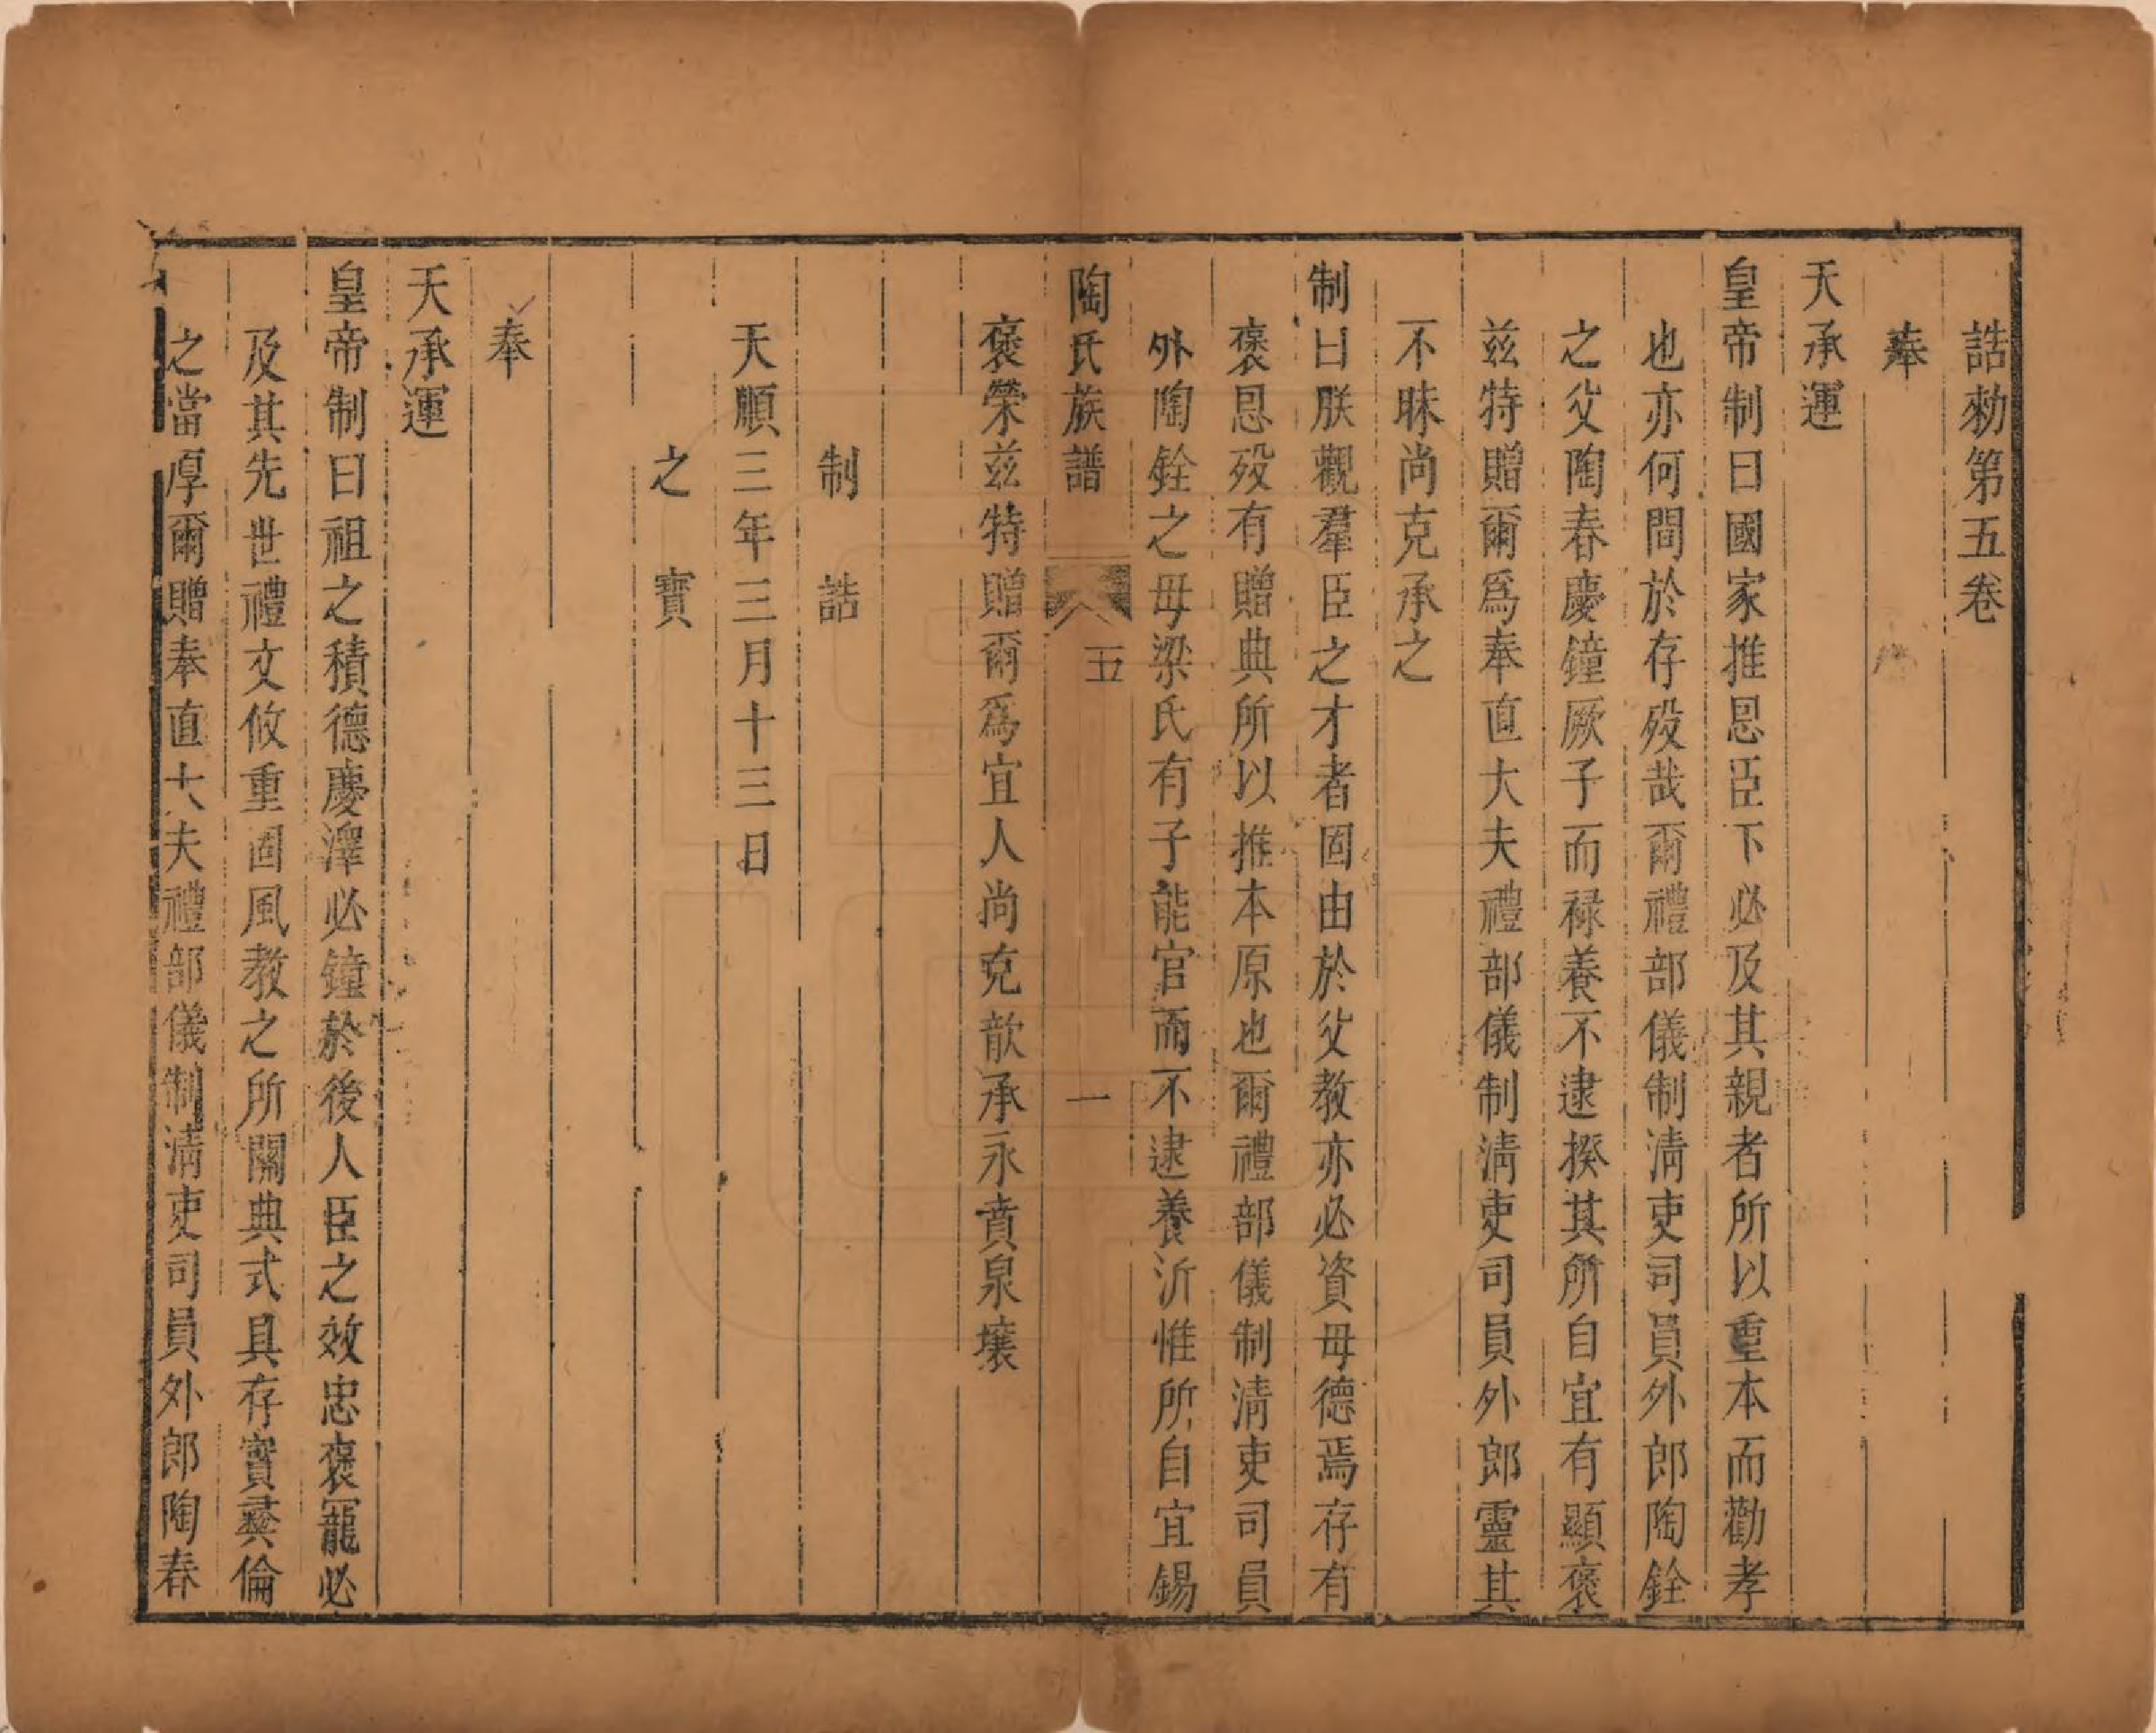 誥勑第五卷
奉
天承運
皇帝制曰國家推恩臣下必及其親者所以重本而勸孝
也亦何間於存歿哉爾禮部儀制淸吏司員外郎陶銓
之父陶春慶鐘厥子而祿養不逮揆其所自宜有顯褒
茲特贈爾爲奉直大夫禮部儀制淸吏司員外郎靈其
不昧尚克承之
制曰朕觀羣臣之才者固由於父教亦必資母德焉存有
褒恩歿有贈典所以推本原也爾禮部儀制淸吏司員
外陶銓之母梁氏有子能官而不逮養沂惟所自宜錫
陶氏族譜 五 一
褒榮茲特贈爾爲宜人尚克歆承永賁泉壤
制誥
天順三年三月十三日
之寶
奉
天承運
皇帝制曰祖之積德慶澤必鐘於後人臣之效忠褒寵必
及其先世禮文攸重固風教之所關典式具存實彛倫
之當厚爾贈奉直大夫禮部儀制淸吏司員外郎陶春